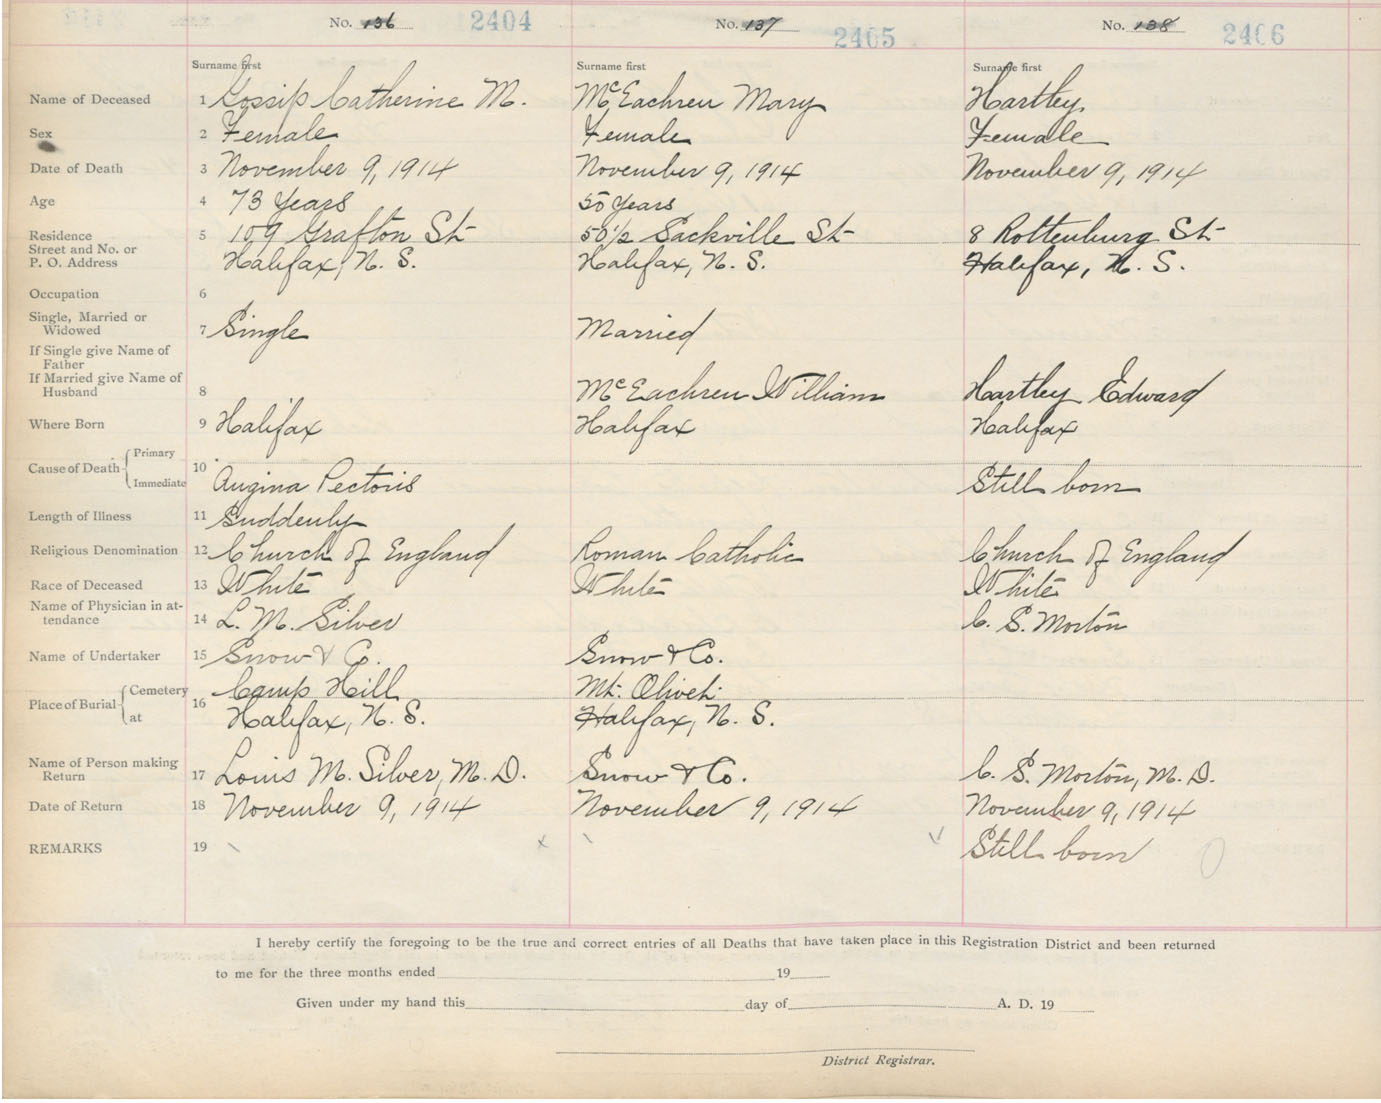 No. 136 2404 No. 137 2405 No. 138 2406
Surname first Surname first Surname first
Name of Deceased 1 Gossip Catherine M. McEachren Mary Hartley
Sex 2 Female Female Female
Date of Death 3 November 9, 1914 November 9, 1914 November 9, 1914
Age 4 73 Years 50 Years
Residence 5 109 Grafton St 50 1/2 Sackville St 8 Rottenburg St
Street and No. or
P. O. Address Halifax, N. S. Halifax, N. S. Halifax, N. S.
Occupation 6
Single, Married or
Widowed 7 Single Married
If Single give Name of
Father
If Married give Name of
Husband 8 McEachren William Hartley Edward
Where Born 9 Halifax Halifax Halifax
Cause of Death Primary 10
Immediate Angina Pectoris Still born
Length of Illness 11 Suddenly
Religious Denomination 12 Church of England Roman Catholic Church of England
Race of Deceased 13 White White White
Name of Physician in at-
tendance 14 L. M. Silver C. S. Morton
Name of Undertaker 15 Snow & Co. Snow & Co.
Place of Burial Cemetery 16 Camp Hill Mt. Olivet
at Halifax, N. S. Halifax, N. S.
Name of Person making
Return 17 Louis M. Silver, M. D. Snow & Co. C. S. Morton, M. D.
Date of Return 18 November 9, 1914 November 9, 1914 November 9, 1914
REMARKS 19 Still born
I hereby certify the foregoing to be the true and correct entries of all Deaths that have taken place in this Registration District and been returned
to me for the three months ended 19
Given under my hand this day of A. D. 19
District Registrar.